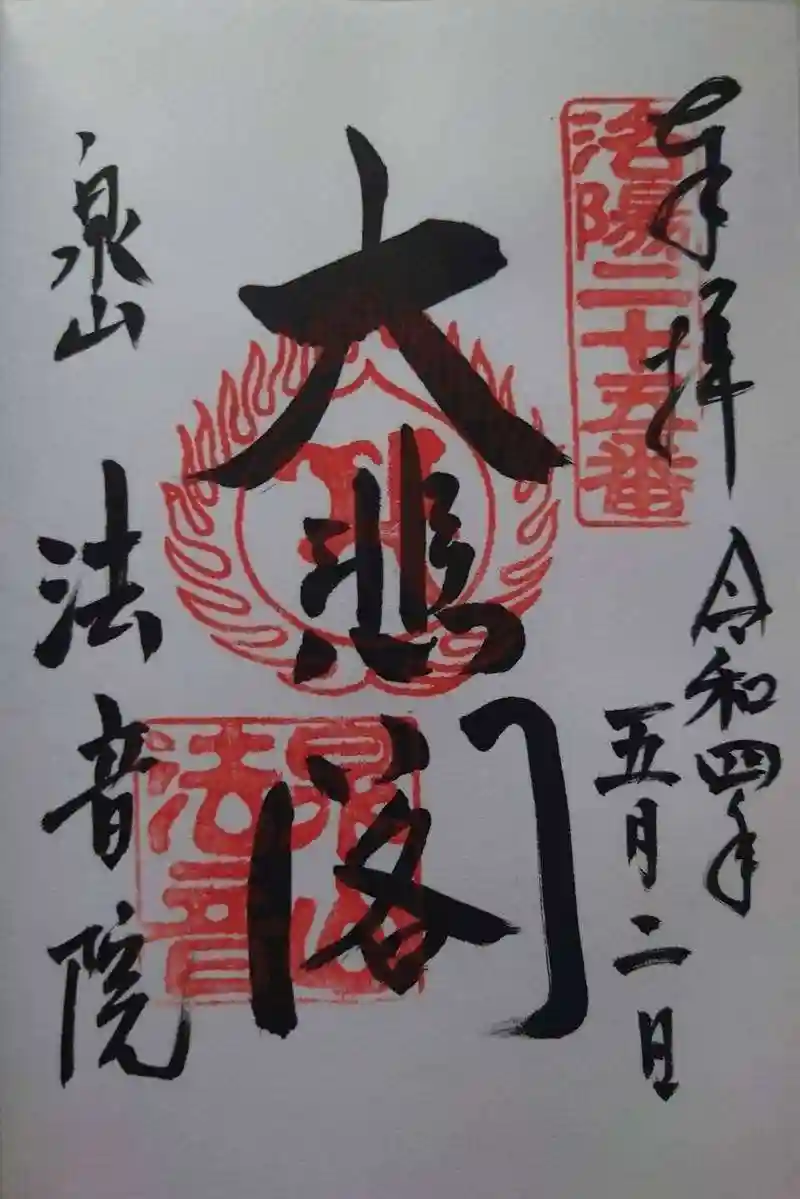 奉拝
令和四年
五月二日
洛陽二十五番
大悲閣
泉山
法音
泉山
法音院